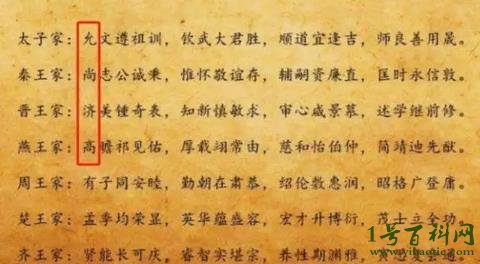 太子家：允文遵祖训，钦武大君胜，顺道宜逢吉，师良善用晟。
秦王家：尚志公诚秉，惟怀敬谊存，辅嗣资廉直，匡时永信敦。
晋王家：济美锺奇表，知新慎敏求，审心咸景慕，述学继前修。
燕王家：高瞻祁见佑，厚载翊常由，慈和怡伯仲，简靖迪先猷。
周王家：有子同安睦，勤朝在肃恭，绍伦敷惠润，昭格广登庸。
楚王家：孟季均荣显，英华蕴盛容，宏才升博衍，茂士立全功。
齐王家：贤能长可庆，睿智实堪宗，养性期渊雅，
1号百科网
www.yibaotic.com